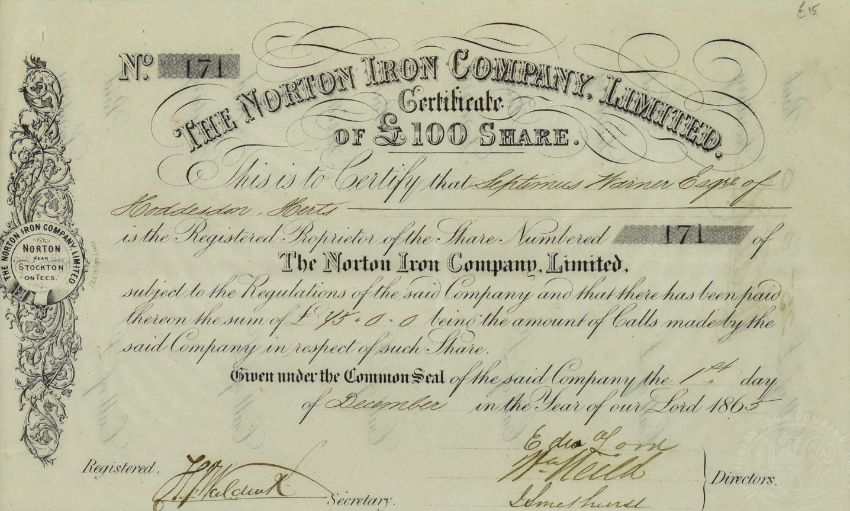 £15
No. 171
THE NORTON IRON COMPANY, LIMITED.
Certificate
OF £100 SHARE.
This is to Certify that Septimus Warner Esqre of
Hoddesdon, Herts
is the Registered Proprietor of the Share Numbered 171 of
The Norton Iron Company, Limited,
subject to the Regulations of the said Company and that there has been paid
thereon the sum of £75.0.0 being the amount of Calls made by the
said Company in respect of such Share.
Given under the Common Seal of the said Company the 1st day
of December in the Year of our Lord 1865
THE NORTON IRON COMPANY, LIMITED
NORTON
NEAR
STOCKTON
ON TEES.
Registered.
Secretary.
Wm Neild
J Smethurst
Directors.